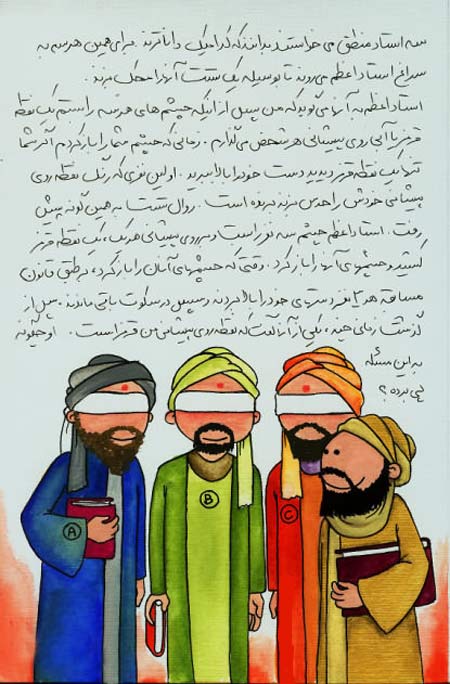 سه استاد منطق می خواستند بدانند که کدامیک داناترند. برای همین هر سه به
سراغ استاد اعظم می روند تا بوسیله یک تست آنها را محک بزند.
استاد اعظم به آنها می گوید که من پس از اینکه چشم های هر سه را بستم یک نقطه
قرمز یا آبی روی پیشانی هر شخص می گذارم. زمانی که چشم شما را باز کردم اگر شما
تنها یک نقطه قرمز دیدید دست خود را بالا ببرید. اولین نفری که رنگ نقطه روی
پیشانی خودش را حدس بزند برنده است. روال تست به همین گونه پیش
رفت. استاد اعظم چشم سه نفر را بست و بر روی پیشانی هر یک، یک نقطه قرمز
کشید و چشمهای آنها را باز کرد. وقتی که چشمهای آنان را باز کرد، بر طبق قانون
مسابقه هر ۳ نفر دستهای خود را بالا بردند و سپس در سکوت باقی ماندند. پس از
گذشت زمانی چند، یکی از آنها گفت که نقطه روی پیشانی من قرمز است. او چگونه
به این مسئله
پی برده؟
A
B
C